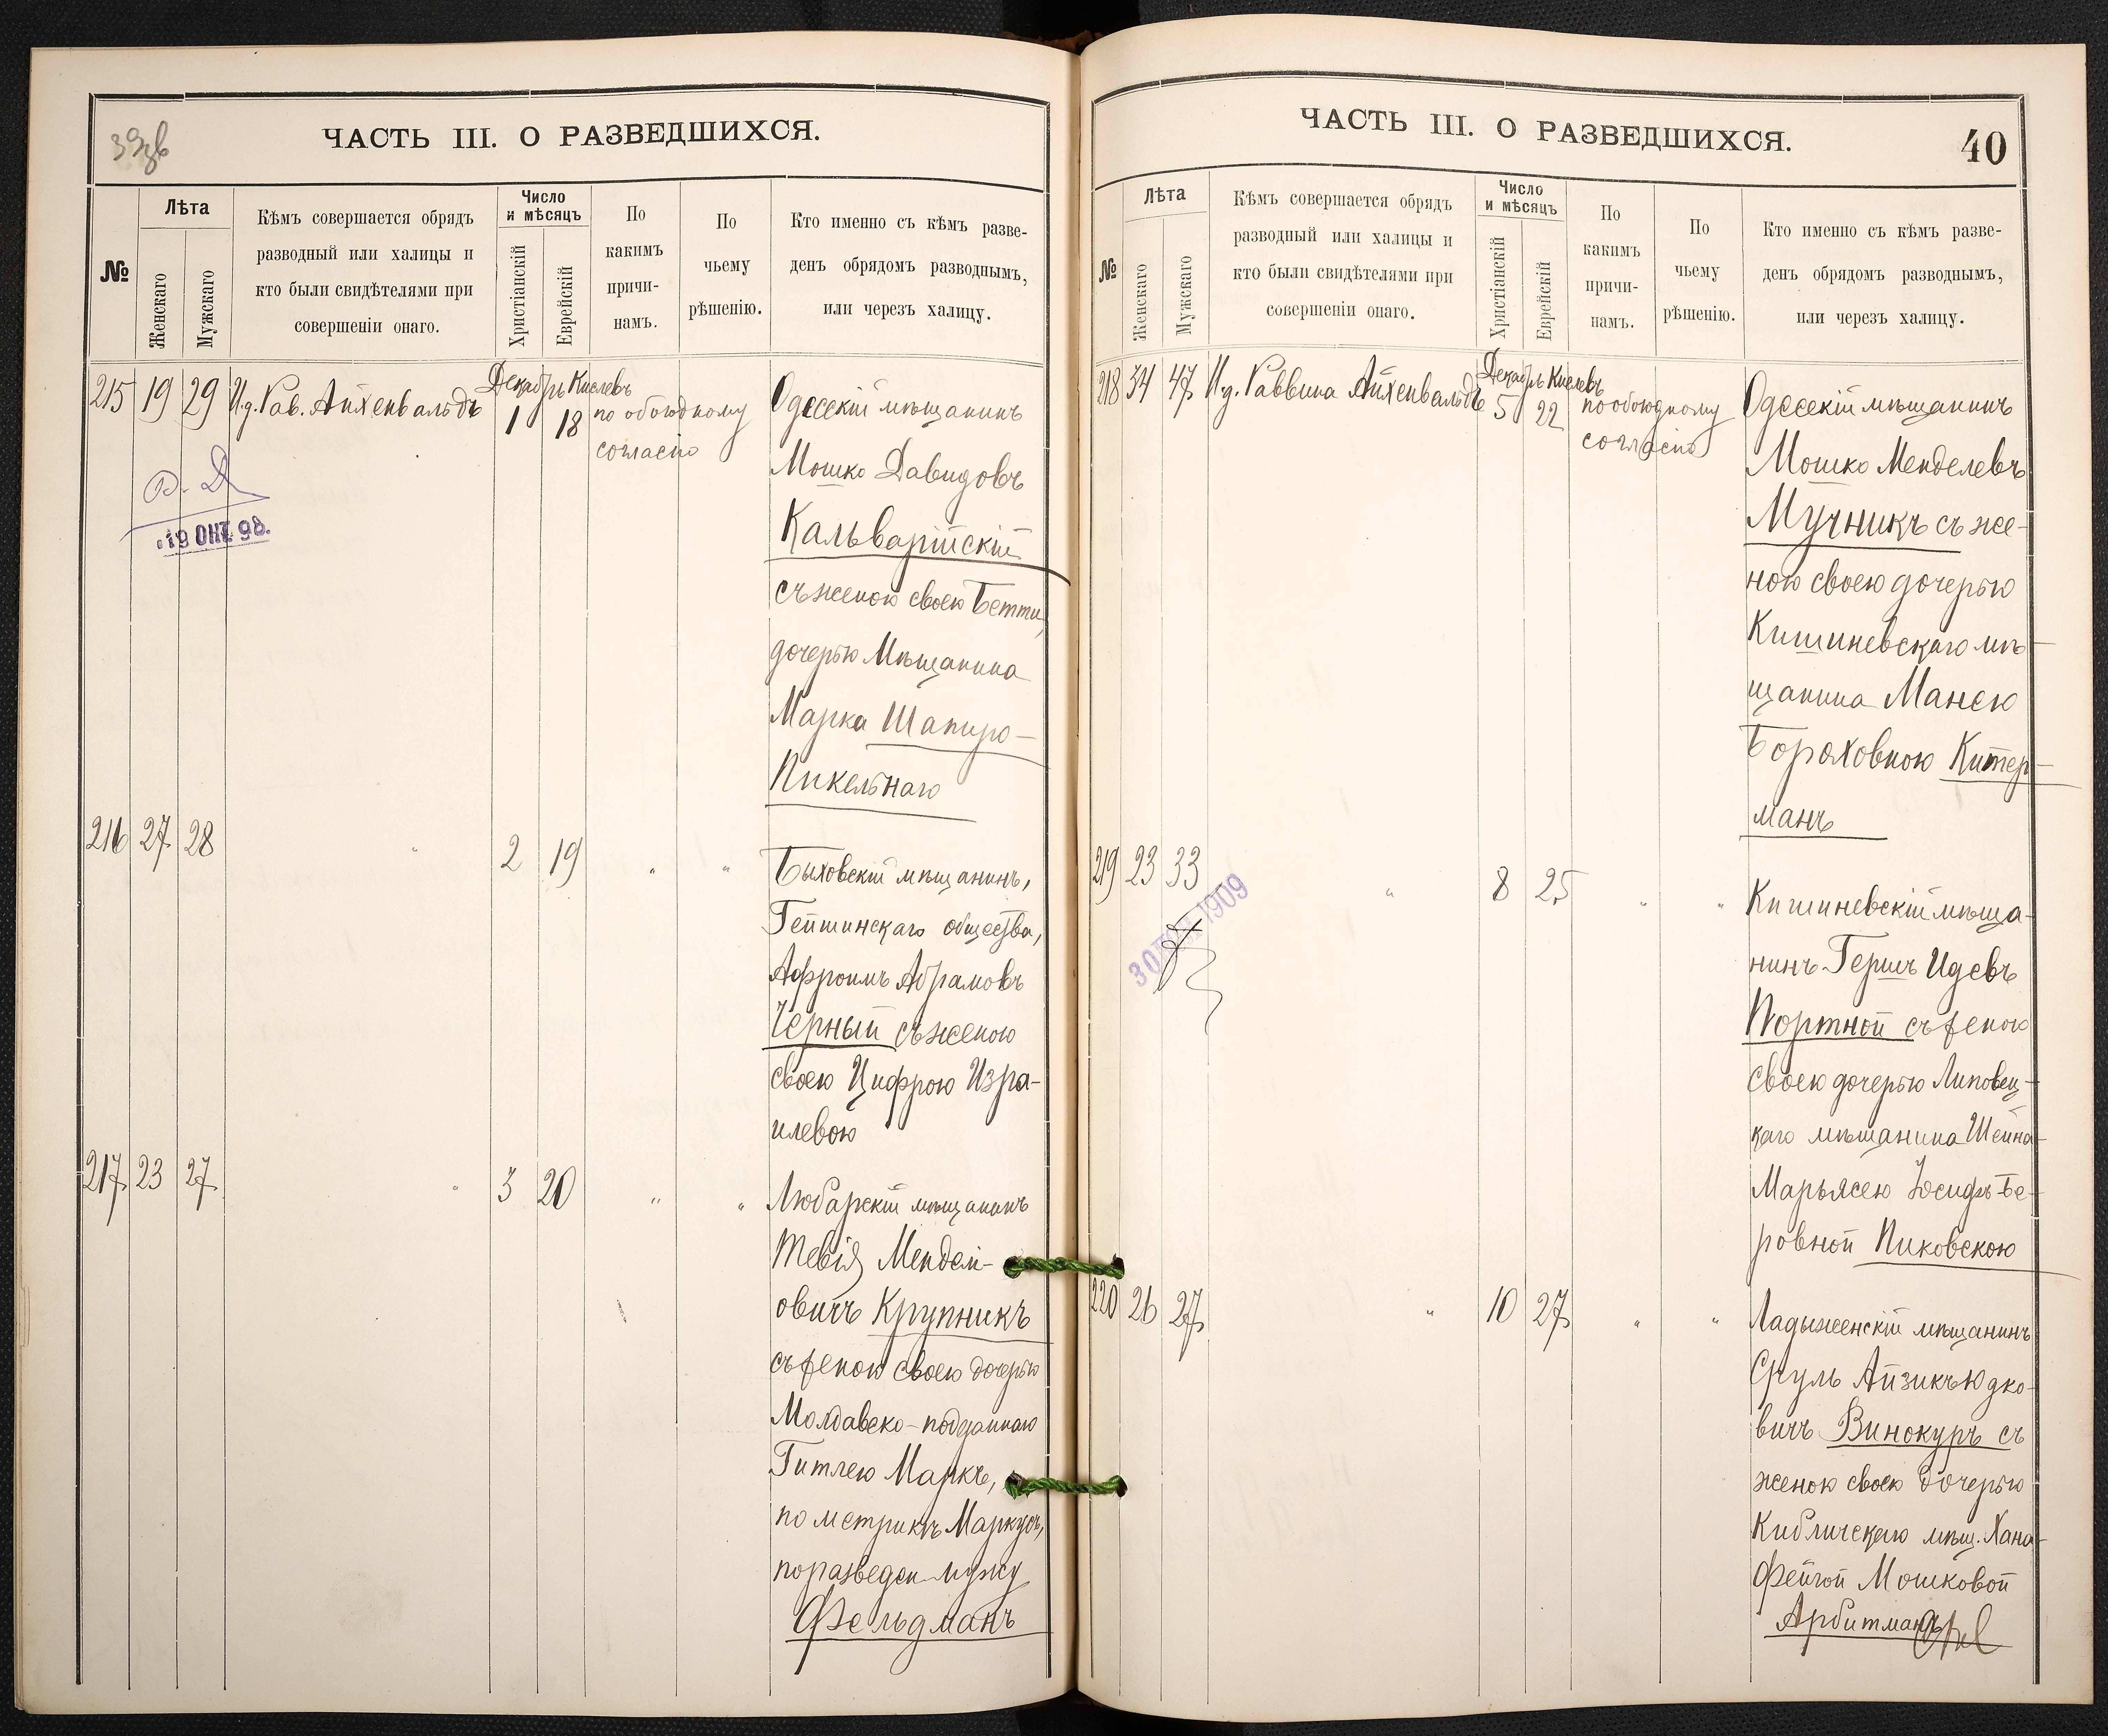 ЧАСТЬ III. О РАЗВЕДШИХСЯ.
№
Лѣта
Женскаго
Мужскаго
Кѣмъ совершается обрядъ
разводный или халицы и
кто были свидѣтелями при
совершеніи онаго.
Число
и мѣсяцъ
Христіанскій
Еврейскій
По
какимъ
причи-
намъ.
По
чьему
рѣшенію.
Кто именно съ кѣмъ разве-
денъ обрядомъ разводнымъ,
или черезъ халицу.
215 19 29 И.д. Рав. Айхенвальдъ
Декабрь Кислевъ
1 18
по обоюдному
согласію
Одесскій мѣщанинъ
Мошко Давидовъ
Кальварійскій
съ женою своею Бетти,
дочерью Мѣщанина
Марка Шапиро-
Пикельнаго
19 ОКТ 98.
216 27 28 " 2 19 " "
Быховскій мѣщанинъ,
Гейшинскаго общества,
Афроимъ Абрамовъ
Черный съ женою
своею Цифрою Изра-
илевою
217 23 27 " 3 20 " "
Любарскій мѣщанинъ
Тевія Мендел-
овичъ Крупникъ
съ женою своею дочерью
Молдавско-подданнаго
Гитлею Маркъ,
по метрикѣ Маркусъ,
по разведен. мужу
Фельдманъ
ЧАСТЬ III. О РАЗВЕДШИХСЯ.
40
№
Лѣта
Женскаго
Мужскаго
Кѣмъ совершается обрядъ
разводный или халицы и
кто были свидѣтелями при
совершеніи онаго.
Число
и мѣсяцъ
Христіанскій
Еврейскій
По
какимъ
причи-
намъ.
По
чьему
рѣшенію.
Кто именно съ кѣмъ разве-
денъ обрядомъ разводнымъ,
или черезъ халицу.
218 34 47 И.д. Раввина Айхенвальдъ
Декабрь Кислевъ
5 22
по обоюдному
согласію
Одесскій мѣщанинъ
Мошко Менделевъ
Мучникъ съ же-
ною своею дочерью
Кишиневскаго мѣ-
щанина Манею
Бороховною Китер-
манъ
219 23 33 " 8 25 " "
1909
Кишиневскій мѣща-
нинъ Гершъ Идевъ
Портной съ женою
своею дочерью Липовец-
каго мѣщанина Шейна-
Марьясею Іосифъ-Бе-
ровной Пиковскою
220 26 27 " 10 27 " "
Ладыженскій мѣщанинъ
Сруль Айзикъ Юдко-
вичъ Винокуръ съ
женою своею дочерью
Кибличскаго мѣщ. Хана-
Фейгой Мошковой
Арбитманъ